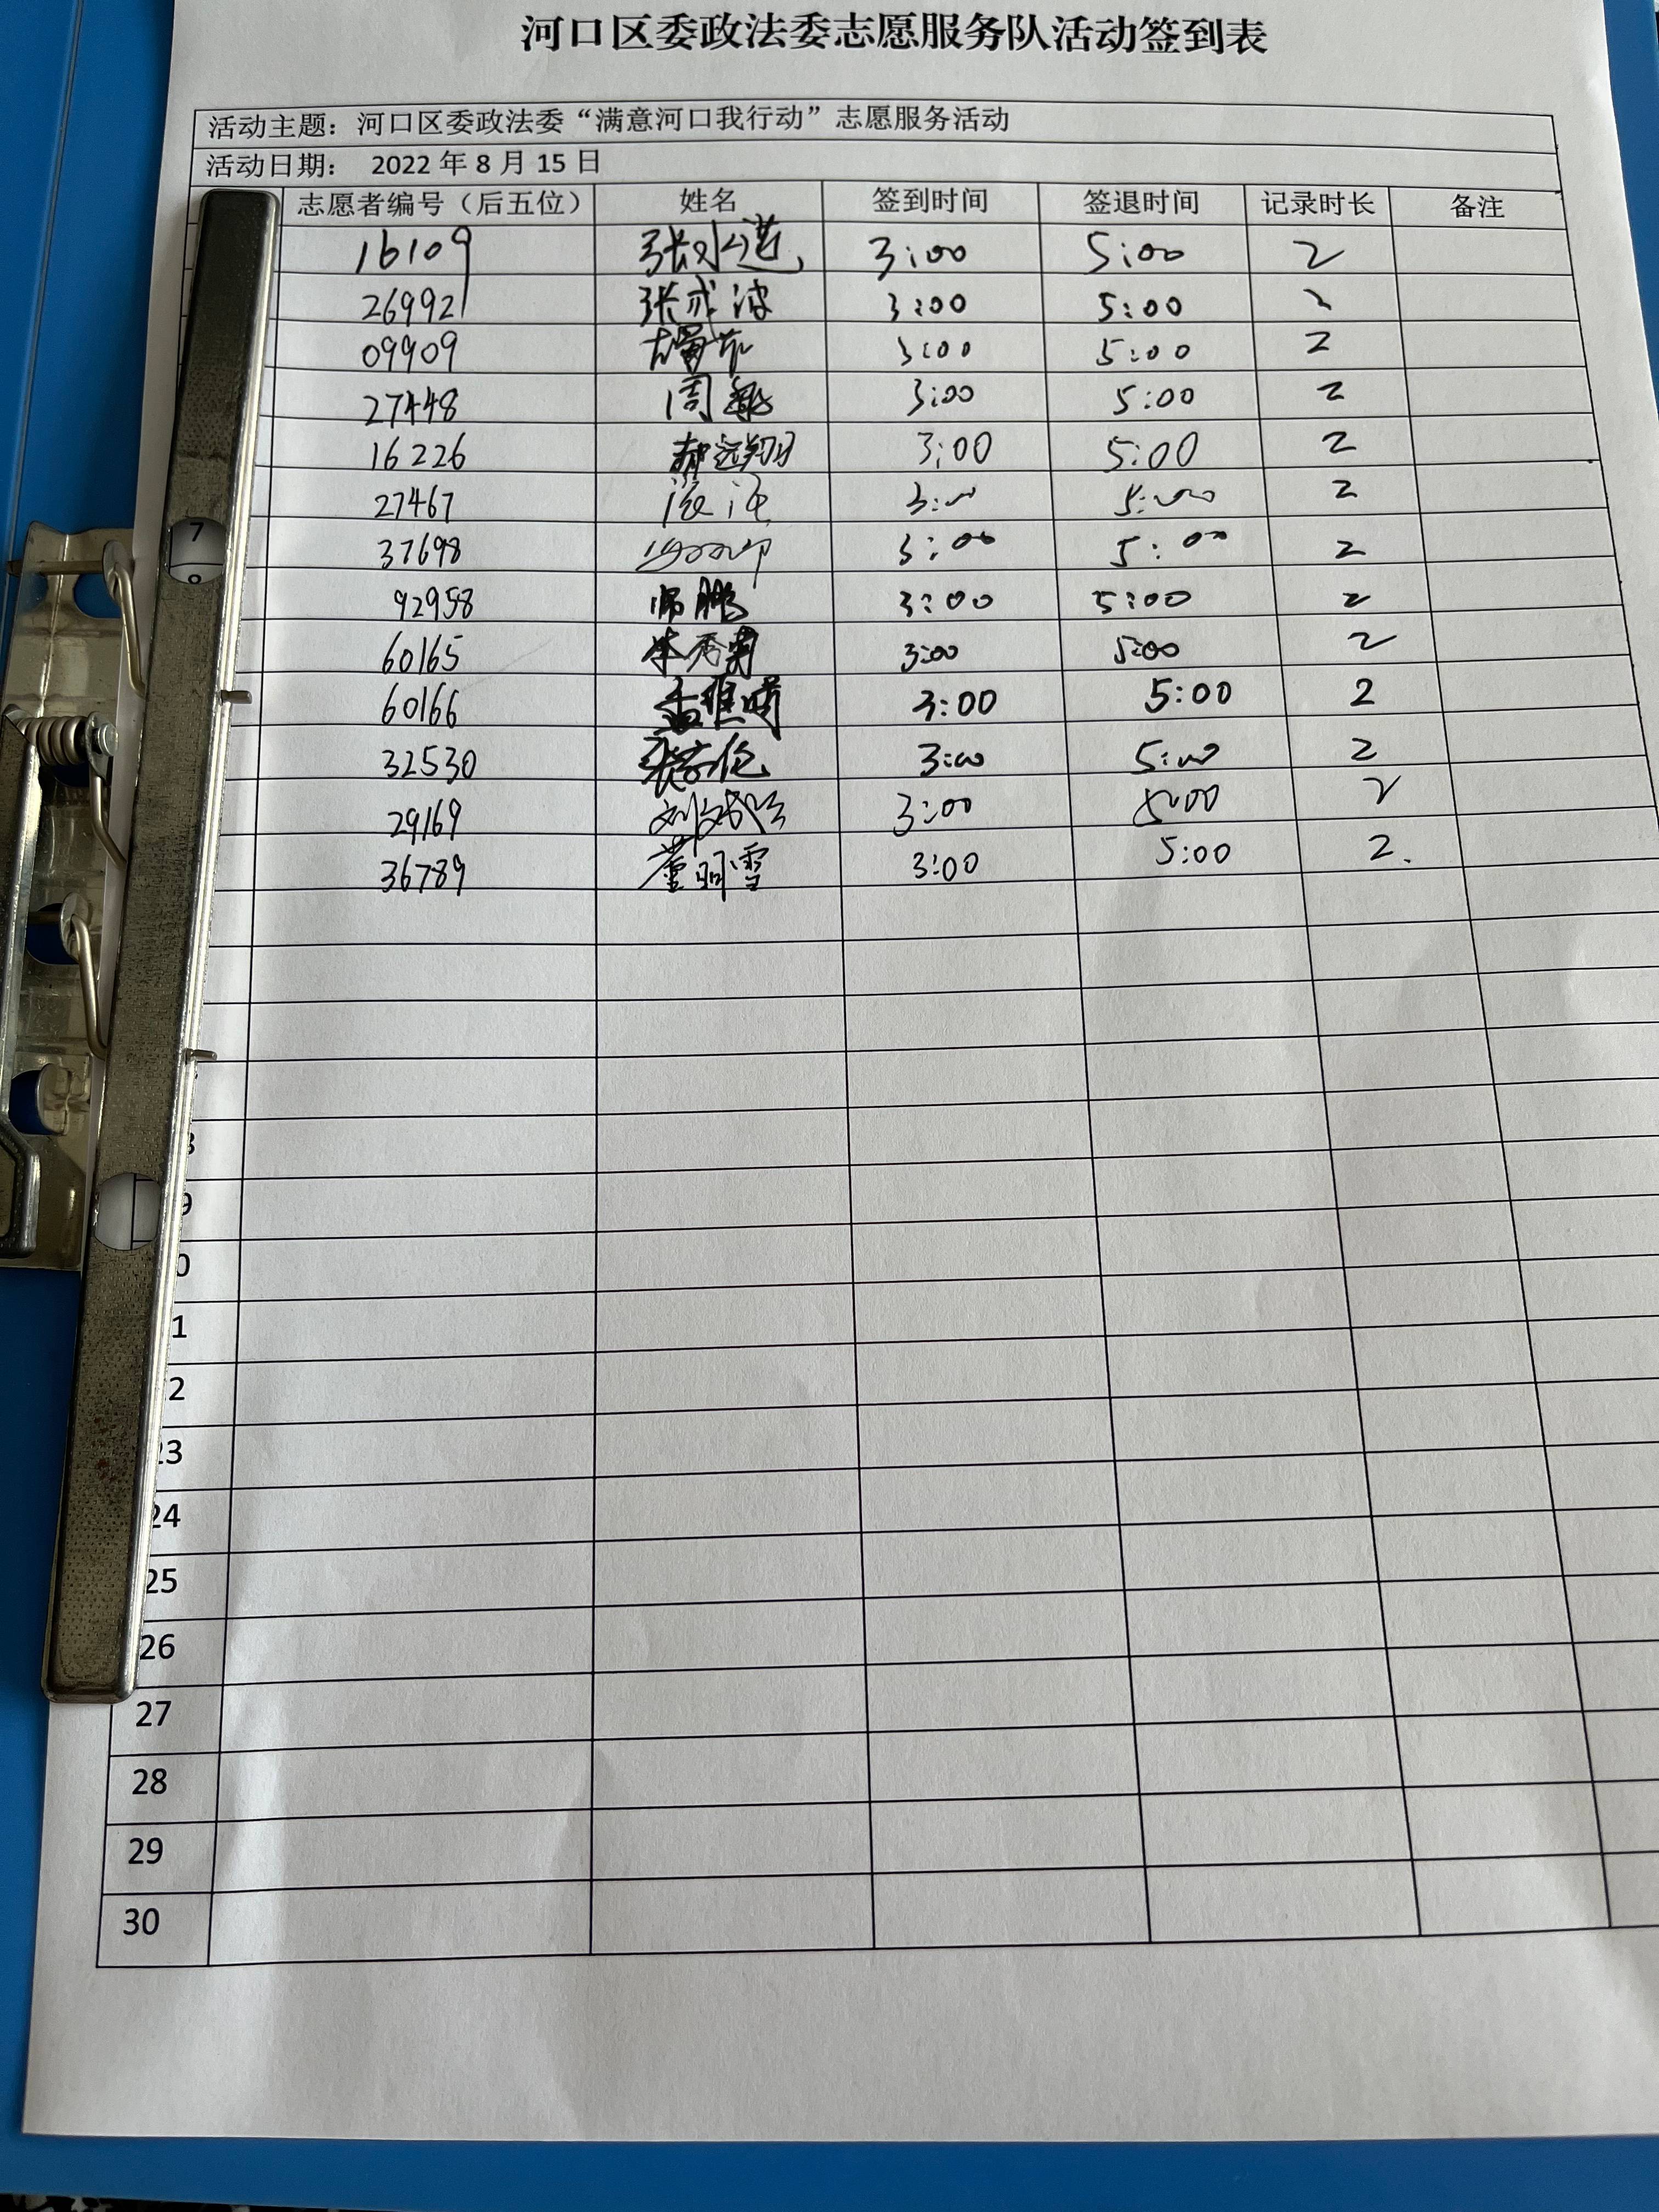 河口区委政法委志愿服务队活动签到表
活动主题：河口区委政法委“满意河口我行动”志愿服务活动
活动日期： 2022 年 8 月 15 日
志愿者编号（后五位） 姓名 签到时间 签退时间 记录时长 备注
16109 3:00 5:00 2
26992 张 波 3:00 5:00 2
09909 3:00 5:00 2
27448 周 3:00 5:00 2
16226 郝远翔 3:00 5:00 2
27467 3:00 5:00 2
7
37698 3:00 5:00 2
92958 鹏 3:00 5:00 2
60165 李秀菊 3:00 5:00 2
60166 孟维 3:00 5:00 2
32530 张 伦 3:00 5:00 2
29169 刘 3:00 5:00 2
36789 董明雪 3:00 5:00 2
23
24
25
26
27
28
29
30